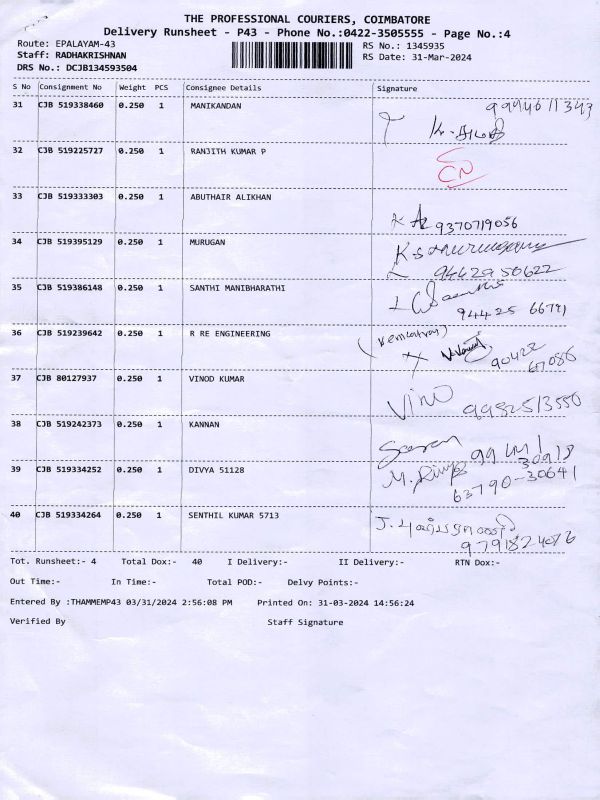 THE PROFESSIONAL COURIERS, COIMBATORE
Delivery Runsheet - P43 - Phone No.:0422-3505555 - Page No.:4
Route: EPALAYAM-43
RS No.: 1345935
Staff: RADHAKRISHNAN
RS Date: 31-Mar-2024
DRS No.: DCJB134593504
S No Consignment No Weight PCS Consignee Details Signature
31 CJB 519338460 0.250 1 MANIKANDAN
32 CJB 519225727 0.250 1 RANJITH KUMAR P
33 CJB 519333303 0.250 1 ABUTHAIR ALIKHAN
9370719056
34 CJB 519395129 0.250 1 MURUGAN
9442950622
35 CJB 519386148 0.250 1 SANTHI MANIBHARATHI
36 CJB 519239642 0.250 1 R RE ENGINEERING
37 CJB 80127937 0.250 1 VINOD KUMAR
Vino
38 CJB 519242373 0.250 1 KANNAN
39 CJB 519334252 0.250 1 DIVYA 51128
63790-30641
40 CJB 519334264 0.250 1 SENTHIL KUMAR 5713
Tot. Runsheet:- 4 Total Dox:- 40 I Delivery:- II Delivery:- RTN Dox:-
Out Time:- In Time:- Total POD:- Delvy Points:-
Entered By :THAMMEMP43 03/31/2024 2:56:08 PM Printed On: 31-03-2024 14:56:24
Verified By Staff Signature